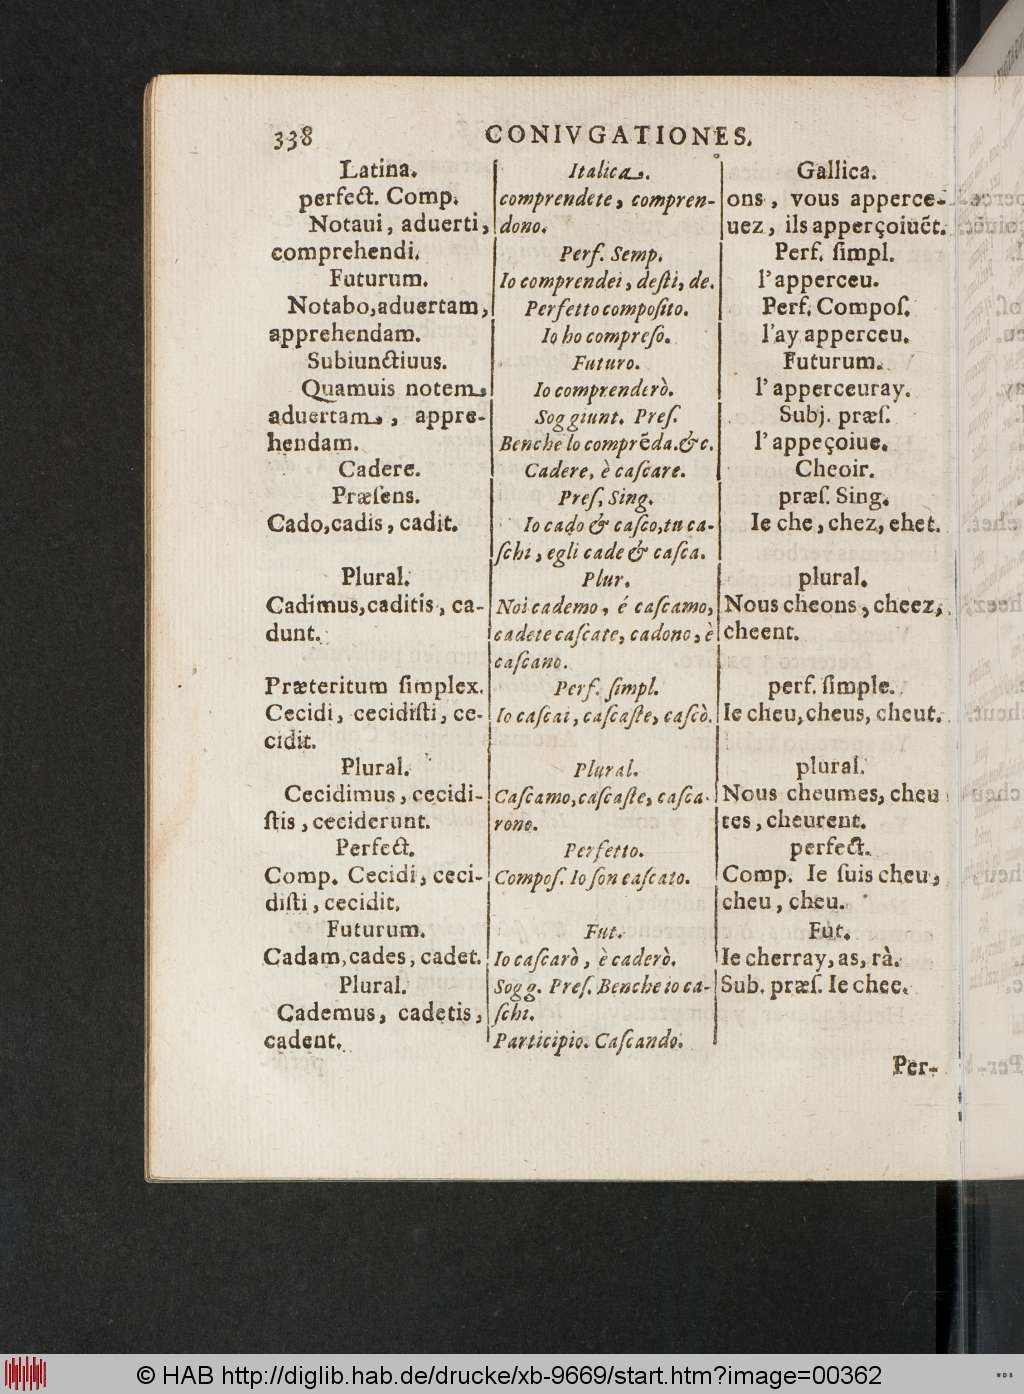 338 CONIVGATIONES.
Latina.
perfect. Comp.
Notaui, aduerti,
comprehendi.
Futurum.
Notabo,aduertam,
apprehendam.
Subiunctiuus.
Quamuis notem,
aduertam, appre-
hendam.
Cadere.
Præſens.
Cado,cadis, cadit.
Plural.
Cadimus,caditis, ca-
dunt.
Præteritum ſimplex.
Cecidi, cecidiſti, ce-
cidit.
Plural.
Cecidimus, cecidi-
ſtis, ceciderunt.
Perfect.
Comp. Cecidi, ceci-
diſti, cecidit.
Futurum.
Cadam,cades, cadet.
Plural.
Cademus, cadetis,
cadent.
Italica.
comprendete, compren-
dono.
Perf. Semp.
Io comprendei, deſti, de.
Perfetto compoſito.
Io ho compreſo.
Futuro.
Io comprenderò.
Soggiunt. Preſ.
Benche lo comprẽda.&c.
Cadere, è caſcare.
Preſ. Sing.
Io cado & caſco,tu ca-
ſchi, egli cade & caſca.
Plur.
Noi cademo, é caſcamo,
cadete caſcate, cadono, è
caſcano.
Perf. ſimpl.
Io caſcai, caſcaſte, caſcò.
Plural.
Caſcamo,caſcaſte, caſca-
rono.
Perfetto.
Compoſ. Io ſon caſcato.
Fut.
Io caſcarò, è caderò.
Sogg. Preſ. Benche io ca-
ſchi.
Participio. Caſcando.
Gallica.
ons, vous apperce-
uez, ils apperçoiuẽt.
Perf. ſimpl.
l'apperceu.
Perf. Compoſ.
l'ay apperceu.
Futurum.
l'apperceuray.
Subj. præſ.
l'appeçoiue.
Cheoir.
præſ. Sing.
Ie che, chez, ehet.
plural.
Nous cheons, cheez,
cheent.
perf. ſimple.
Ie cheu, cheus, cheut.
plural.
Nous cheumes, cheu
tes, cheurent.
perfect.
Comp. Ie ſuis cheu,
cheu, cheu.
Fut.
Ie cherray, as, rà.
Sub. præſ. Ie chee.
Per-
© HAB http://diglib.hab.de/drucke/xb-9669/start.htm?image=00362